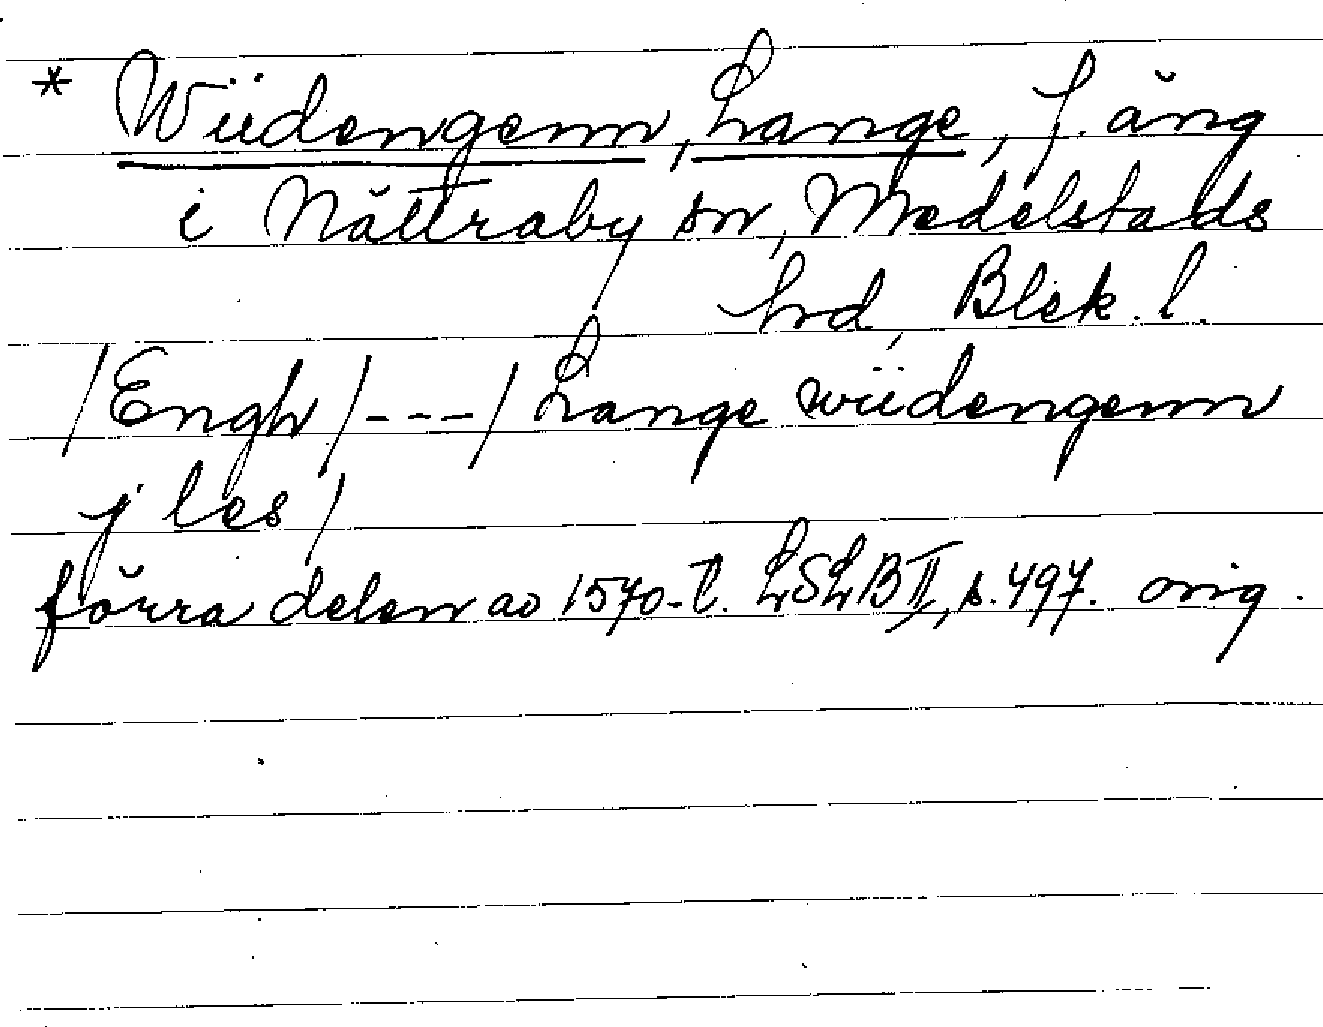 * Wiidengenn, Lange, f. äng
i Nättraby sn, Medelstads
hrd, Blek. l.
/Engh/---/Lange wiidengenn
j les/
förra delen av 1570-t. LSLB II, s. 497. orig.